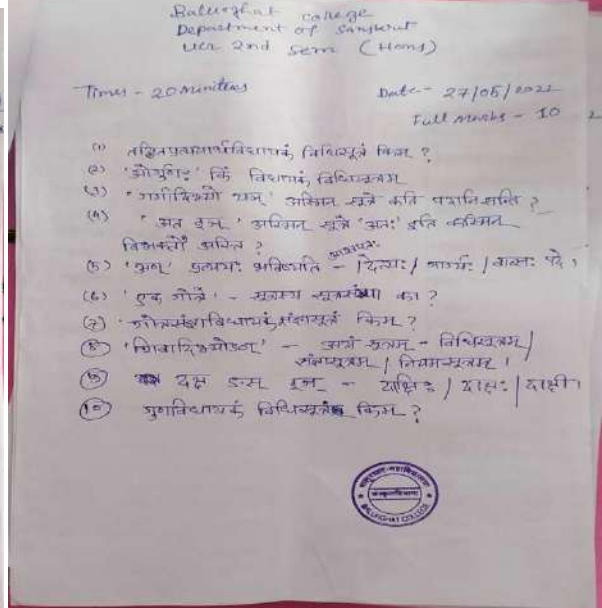 Balurghat College
Department of Sanskrit
UCR 2nd Sem (Hons)
Time - 20 Minitues Date - 27/05/2022
Full Marks - 10
(1) तद्धितप्रत्ययार्थविधायकं विधिसूत्रं किम् ?
(2) 'ओर्गुणः' किं विधायकं विधिसूत्रम्
(3) 'गर्गादिभ्यो यञ्' अस्मिन् सूत्रे कति पदानि सन्ति ?
(4) 'अत इञ्' अस्मिन् सूत्रे 'अतः' इति कस्मिन्
विभक्तौ अस्ति ?
(5) 'अण्' प्रत्ययः भविष्यति - दैत्यः / गार्ग्यः / वात्सः पदे।
(6) 'एको गोत्रे' - सूत्रस्य सूत्रसंख्या का ?
(7) गोत्रसंज्ञाविधायकं संज्ञासूत्रं किम् ?
(8) 'शिवादिभ्योऽण्' - अयं सूत्रम् - विधिसूत्रम् /
संज्ञासूत्रम् / नियमसूत्रम् ।
(9) दक्ष ङस् इञ् - दाक्षिः / दाक्षः / दाक्षी।
(10) गुणविधायकं विधिसूत्रं किम् ?
BALURGHAT COLLEGE